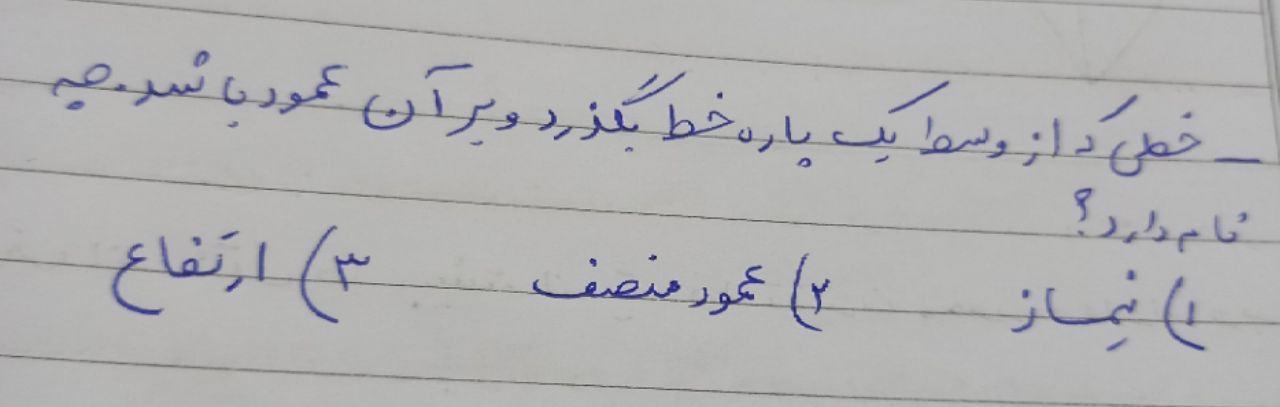 - خطی که از وسط یک پاره خط بگذرد و بر آن عمود باشد. چه
نام دارد؟
۱) نیمساز ۲) عمود منصف ۳) ارتفاع